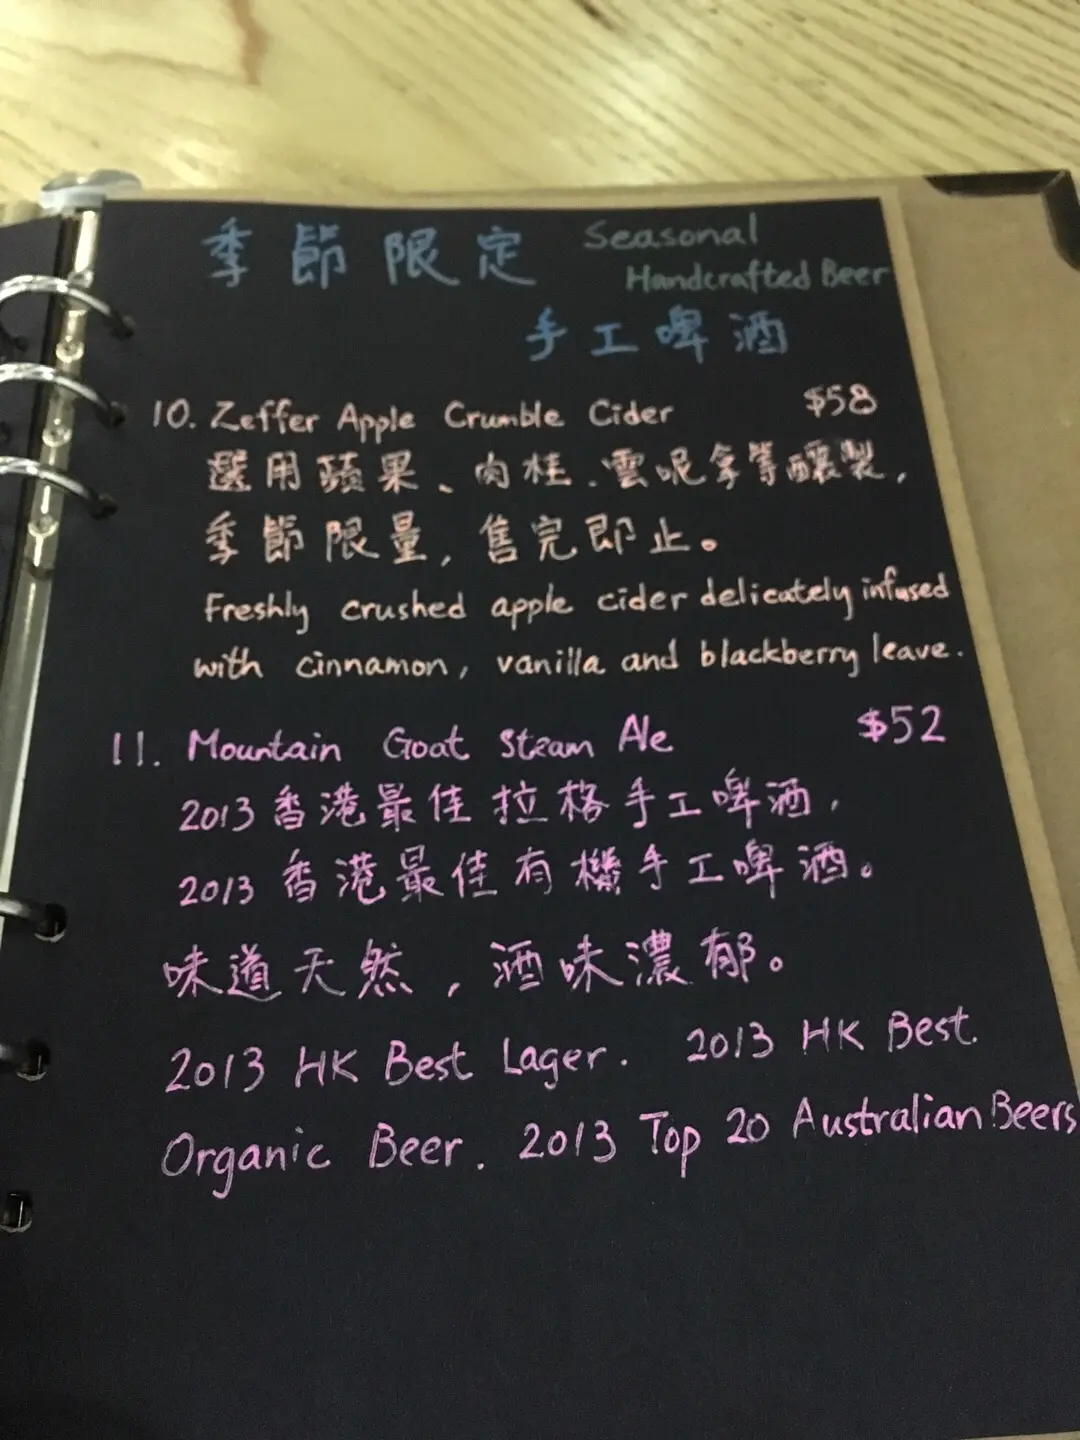 季節限定 Seasonal
Handcrafted Beer
手工啤酒
10. Zeffer Apple Crumble Cider $58
選用蘋果、肉桂、雲呢拿等釀製,
季節限量,售完即止。
Freshly crushed apple cider delicately infused
with cinnamon, vanilla and blackberry leave.
11. Mountain Goat Steam Ale $52
2013香港最佳拉格手工啤酒,
2013香港最佳有機手工啤酒。
味道天然,酒味濃郁。
2013 HK Best Lager. 2013 HK Best.
Organic Beer. 2013 Top 20 Australian Beers